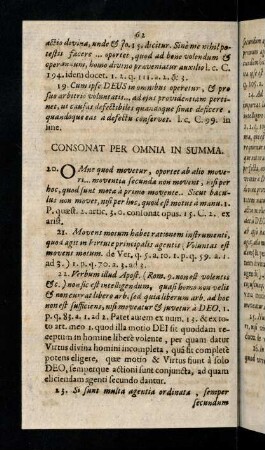 62
actio divina, unde & Jo. 15. dicitur. Sine me nihil po-
testis facere ... oportet, quod ad bene volendum &
operandum, homo divino præveniatur auxilio l. c. C.
194. idem docet. 1. 2. q. 111. a. 2. & 3.
19. Cum ipse DEUS in omnibus operetur, & pro-
sus arbitrii voluntatis... ad ejus providentiam perti-
net, ut causas defectibiles quandoque sinat deficere,
quandoque eas a defectu conservet. l. c. C. 99. in
fine.
CONSONAT PER OMNIA IN SUMMA.
20. OMne quod movetur, oportet ab alio move-
ri... moventia secunda non movent, nisi per
hoc, quod sunt mota à primo movente. Sicut bacu-
lus non movet, nisi per hoc, quod est motus à manu. 1.
P. quæst. 2. artic. 3. o. consonat opus. 15. C. 2. ex
arist.
21. Movens motum habet rationem instrumenti,
quod agit in virtute principalis agentis (Voluntas est
movens motum. de Ver. q. 5. a. 10. 1. p. q. 59. a. 1.
ad 3.) 1. 2. q. 70. a. 3. ad 1.
22. Verbum illud Apost. (Rom. 9. non est volentis
&c.) non sic est intelligendum, quasi homo non velit
& non currat libero arb. sed quia liberum arb. ad hoc
non est sufficiens, nisi moveatur & juvetur à DEO. 1.
p. q. 83. a. 1. ad 2. Patet autem ex num. 15. & ex to-
to art. meo 1. quod illa motio DEI sit quoddam re-
ceptum in homine liberè volente, per quam datur
Virtus divina homini incompleta, quâ fit complete
potens eligere, quæ motio & Virtus fiunt à solo
DEO, semperque actioni sunt conjuncta, ad quam
eliciendam agenti secundo dantur.
23. Si sunt multa agentia ordinata, semper
secundum